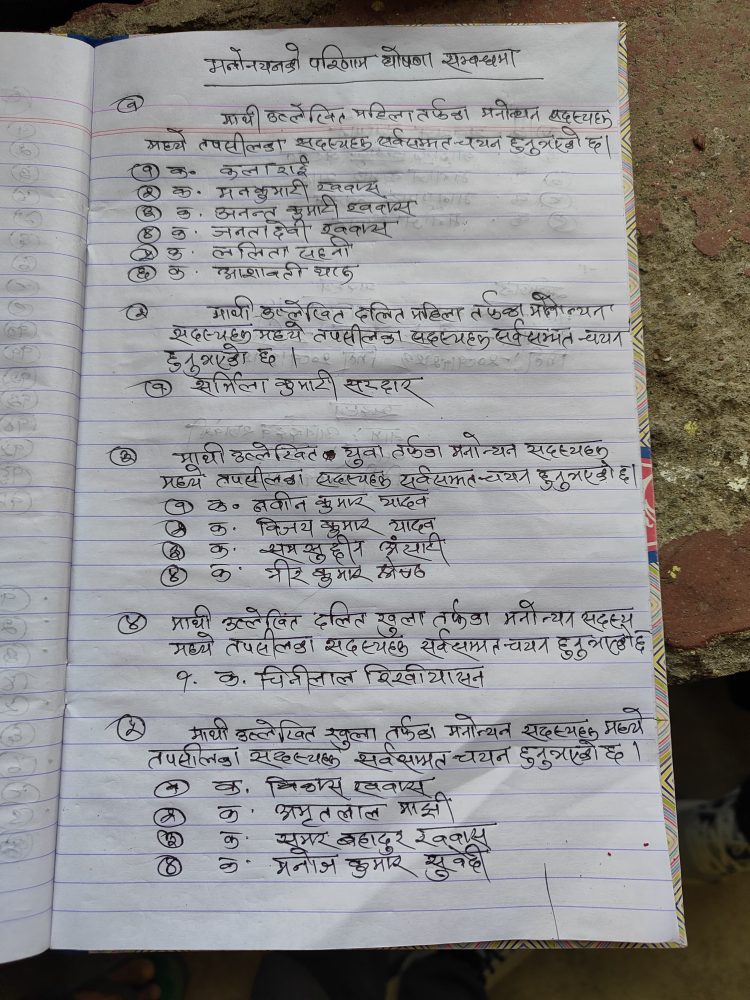 मनोनयनको परिणाम घोषणा सम्बन्धमा
१
माथी उल्लेखित महिला तर्फका मनोन्यन सदस्यहरु
मध्ये तपसीलका सदस्यहरु सर्वसम्मत चयन हुनुभएको छ।
(१) क. कला राई
(२) क. मनकुमारी खवास
(३) क. अनन्त कुमारी खवास
(४) क. जनता देवी खवास
(५) क. ललिता सहनी
(६) क. आशावती
२ माथी उल्लेखित दलित महिला तर्फका मनोन्यन
सदस्यहरु मध्ये तपसीलका सदस्यहरु सर्वसम्मत चयन
हुनुभएको छ ।
(१) सर्मिला कुमारी सरदार
३ माथी उल्लेखित युवा तर्फका मनोन्यन सदस्यहरु
मध्ये तपसीलका सदस्यहरु सर्वसम्मत चयन हुनुभएको छ।
(१) क. नवीन कुमार यादव
(२) क. विजय कुमार यादव
(३) क. समसुद्दीन अंसारी
(४) क. कुमार
४ माथी उल्लेखित दलित खुला तर्फका मनोन्यन सदस्य
मध्ये तपसीलका सदस्यहरु सर्वसम्मत चयन हुनुभएको छ
१. क. चिनीलाल
५ माथी उल्लेखित खुला तर्फका मनोन्यन सदस्यहरु मध्ये
तपसीलका सदस्यहरु सर्वसम्मत चयन हुनुभएको छ ।
(१) क. विकास खवास
(२) क. अमृतलाल माझी
(३) क. सुमर बहादुर खवास
(४) क. मनोज कुमार सुवेदी